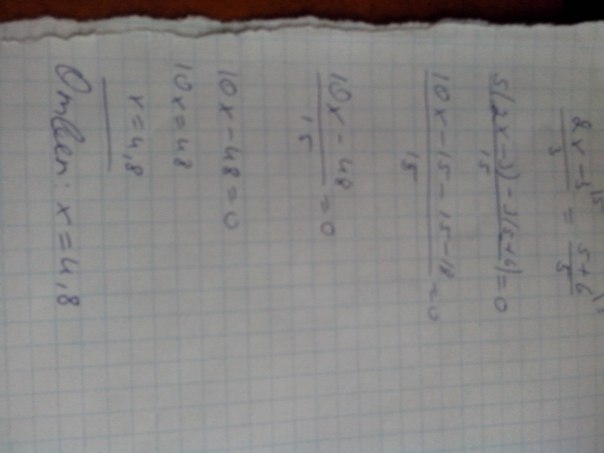 2x - 3 / 3 = 5 + 6 / 5
5(2x - 3) - 3(5+6) / 15 = 0
10x - 15 - 15 - 18 / 15 = 0
10x - 48 / 15 = 0
10x - 48 = 0
10x = 48
x = 4,8
Ответ: x = 4,8